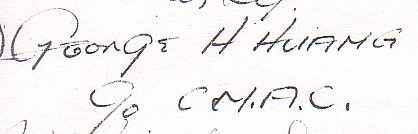 George H Huang
c/o C.M.A.C.